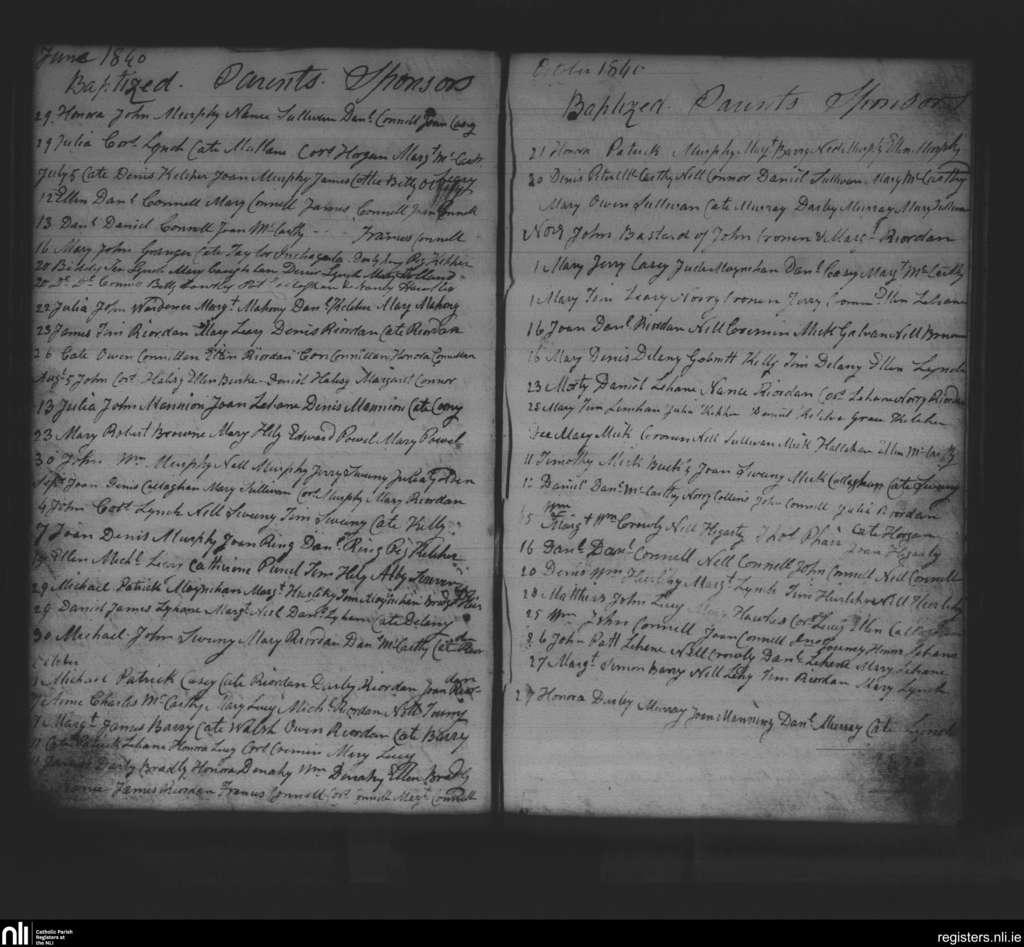 June 1840
Baptized. Parents. Sponsors
29 Honora John Murphy Nance Sullivan Danl Connell Joan Casy
29 Julia Cors Lynch Cate Mullane Cors Horgan Margt McCart
July 5 Cate Denis Kelcher Joan Murphy James Cottie Betty
12 Ellen Danl Connell Mary Connell James Connell Joan Connell
13 Danl Daniel Connell Joan McCarthy - - Frances Connell
16 Mary John Granger Cate Taylor Peg Kelcher
20 Biddy Tim Lynch Mary Denis Lynch Mary Holland
20 Do Do Connor Betty
22 Julia John Wardence Margt Mahony Danl Kelcher Mary Mahony
23 James Tim Riordan Mary Lucy Denis Riordan Cate Riordan
26 Cate Owen Connillan Ellen Riordan Cors Connillan Honora Connillan
Augt 5 John Cors Halisy Ellen Burke Daniel Halisy Margaret Connor
13 Julia John Mannion Joan Lehane Denis Mannion Cate Cony
23 Mary Robert Browne Mary Hely Edward Powel Mary Powel
30 John Wm Murphy Nell Murphy Jerry Sweny Julia Golden
Sept Joan Denis Callaghan Mary Sullivan Cors Murphy Mary Riordan
4 John Cors Lynch Nell Sweny Tim Sweny Cate Kelly
7 Joan Denis Murphy Joan Ring Danl Ring Peg Kelcher
Ellen Michl Lucy Catherine Purcel Tim Hely Abby
29 Michael Patrick Moynihan Margt Hurlihy Tim Moynihan
29 Daniel James Lyhane Margt Neil Danl Lyhane Cate Delany
30 Michael John Sweny Mary Riordan Danl McCarthy Cate
October
1 Michael Patrick Casey Cate Riordan Darby Riordan Joan Riordan
7 Anne Charles McCarthy Mary Lucy Michl Riordan Nell Twomy
7 Margt James Barry Cate Walsh Owen Riordan Cate Barry
11 Cate Patrick Lehane Honora Lucy Cors Cremin Mary Lucy
11 James Darby Bradly Honora Denahy Wm Denahy Ellen Bradly
James Riordan Frances Connell Cors Connell Margt Connell
October 1840
Baptized. Parents Sponsors
21 Honora Patrick Murphy Margt Barry Ned Murphy Ellen Murphy
20 Denis Peter McCarthy Nell Connor Daniel Sullivan Mary McCarthy
Mary Owen Sullivan Cate Murray Darby Murray Mary Sullivan
Novr John Bastard of John Cronen & Margt Riordan
1 Mary Jerry Casey Jude Moynihan Danl Casey Margt McCarthy
1 Mary Tim Leary Norry Cronen Jerry Cronen Ellen Lehane
16 Joan Danl Riordan Nell Cremin Mick Galvan Nell
16 Mary Denis Delany Gobnitt Kelly Tim Delany Ellen Lynch
23 Morty Daniel Lehane Nance Riordan Cors Lehane Norry Riordan
28 Mary Tim Linehan Julia Kelcher Daniel Kelcher Grace Kelcher
Dec Mary Mick Cronen Nell Sullivan Mick Hallahan Ellen McCarthy
11 Timothy Mick Buckly Joan Sweny Mick Callaghan Cate Sweny
12 Daniel Danl McCarthy Norry Collins John Connell Julia Riordan
Wm
15 Margt Wm Crowly Nell Hegarty Thos Phair Cate Horgan
Joan Hegarty
16 Danl Danl Connell Nell Connell John Connell Nell Connell
20 Denis Wm Hurlihy Margt Lynch Tim Hurlihy Nell Hurlihy
23 Matthew John Lucy Mary Hawkes Cors Lucy Ellen Callaghan
25 Wm John Connell Joan Connell Honora Lehane
26 John Patt Lehane Nell Crowly Danl Lehane Mary Lehane
27 Margt Simon Barry Nell Lehy Tim Riordan Mary Lynch
27 Honora Darby Murray Joan Manning Danl Murray Cate Lynch
nli Catholic Parish
Registers at
the NLI
registers.nli.ie